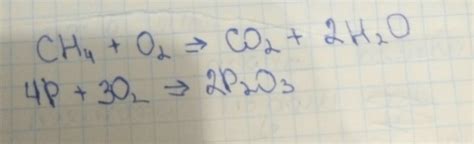 CH₄ + O₂ ⇒ CO₂ + 2H₂O
4P + 3O₂ ⇒ 2P₂O₃